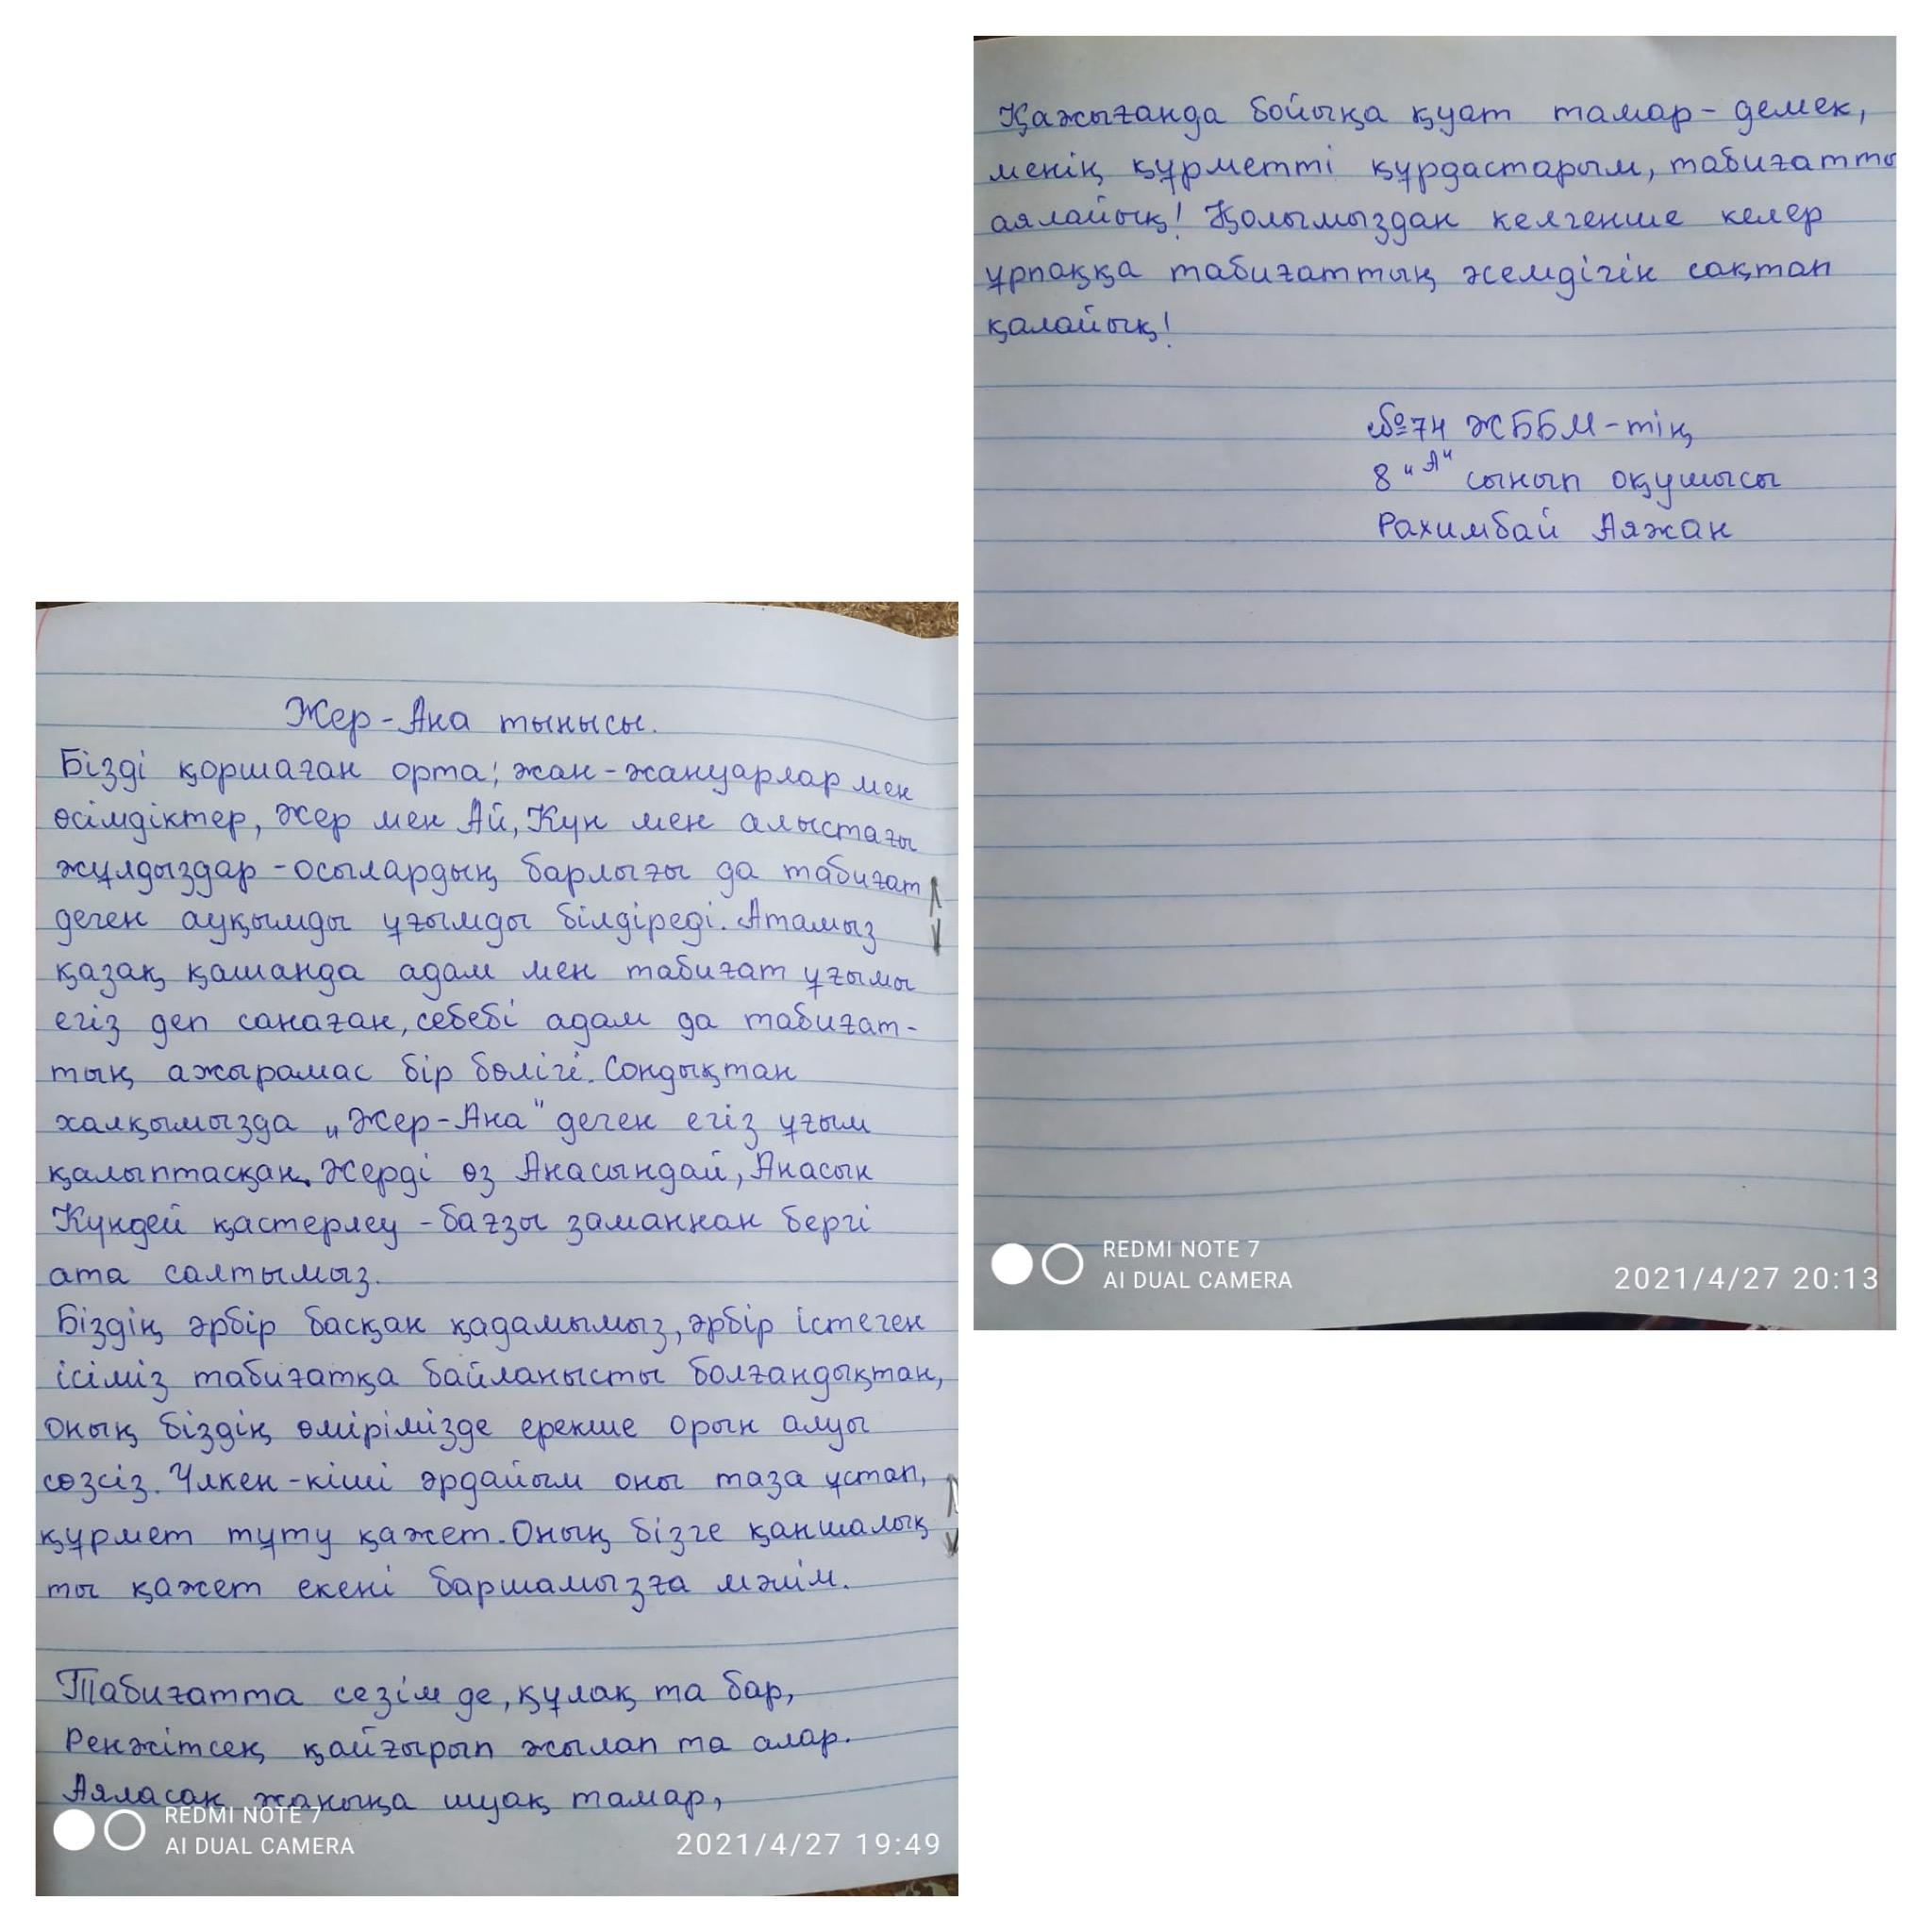 Жер-Ана тынысы.
Бізді қоршаған орта; жан-жануарлар мен
өсімдіктер, Жер мен Ай, Күн мен алыстағы
жұлдыздар - осылардың барлығы да табиғат
деген ауқымды ұғымды білдіреді. Атамыз
қазақ қашанда адам мен табиғат ұғымы
егіз деп санаған, себебі адам да табиғат-
тың ажырамас бір бөлігі. Сондықтан
халқымызда „Жер-Ана" деген егіз ұғым
қалыптасқан. Жерді өз Анасындай, Анасын
Күндей қастерлеу - бағзы заманнан бергі
ата салтымыз.
Біздің әрбір басқан қадамымыз, әрбір істеген
ісіміз табиғатқа байланысты болғандықтан,
оның біздің өмірімізде ерекше орын алуы
сөзсіз. Үлкен-кіші әрдайым оны таза ұстап,
құрмет тұту қажет. Оның бізге қаншалық
ты қажет екені баршамызға мәлім.
Табиғатта сезім де, құлақ та бар,
Ренжітсең қайғырып жылап та алар.
Аяласаң жаныңа шуақ тамар,
REDMI NOTE 7
AI DUAL CAMERA
2021/4/27 19:49
Қажығанда бойыңа қуат тамар - демек,
менің құрметті құрдастарым, табиғатты
аялайық! Қолымыздан келгенше келер
ұрпаққа табиғаттың жемдігін сақтап
қалайық!
№74 ЖББМ-тің
8 "А" сынып оқушысы
Рахимбай Аяжан
REDMI NOTE 7
AI DUAL CAMERA
2021/4/27 20:13